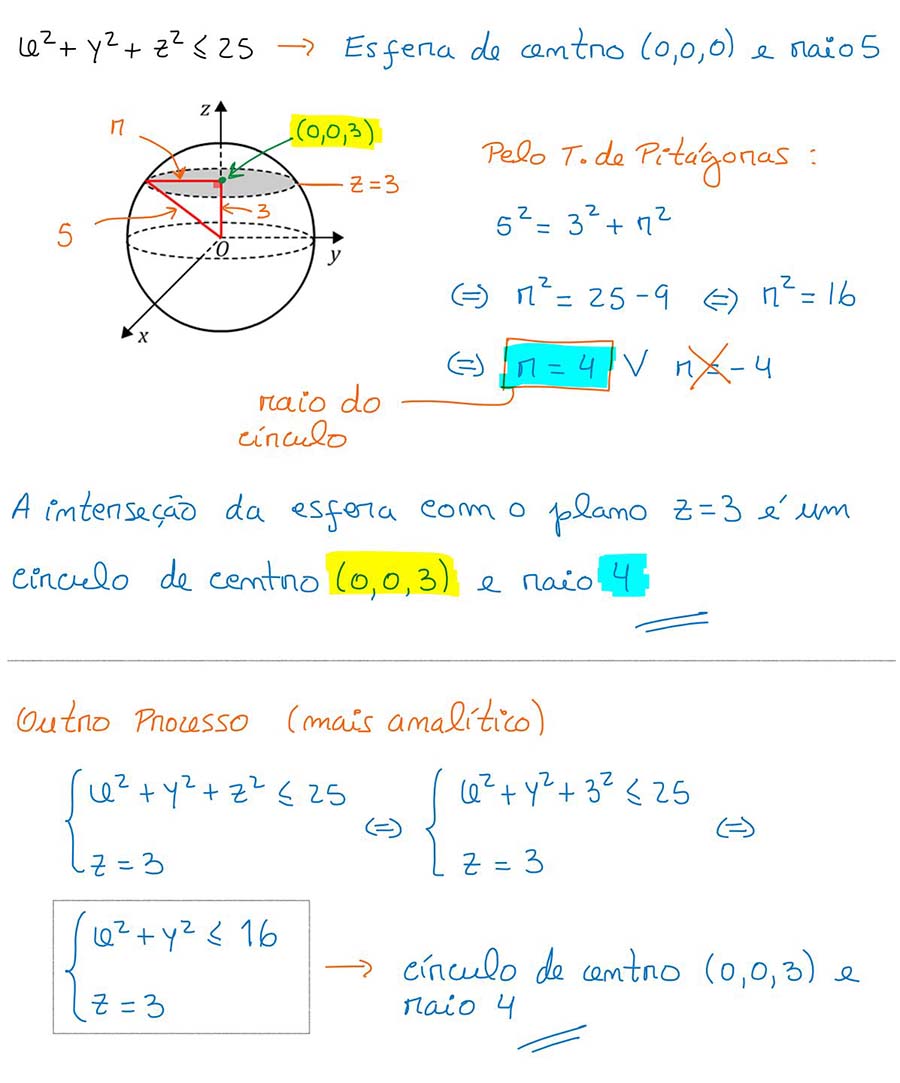 x² + y² + z² ≤ 25 → Esfera de centro (0,0,0) e raio 5
z
r
(0,0,3)
z = 3
3
5
O
y
x
Pelo T. de Pitágoras :
5² = 3² + r²
(=) r² = 25 - 9 (=) r² = 16
(=) r = 4 V r = - 4
raio do
círculo
A interseção da esfera com o plano z = 3 é um
círculo de centro (0,0,3) e raio 4
Outro Processo (mais analítico)
{ x² + y² + z² ≤ 25 (=) { x² + y² + 3² ≤ 25 (=)
z = 3 z = 3
{ x² + y² ≤ 16
z = 3
→ círculo de centro (0,0,3) e
raio 4